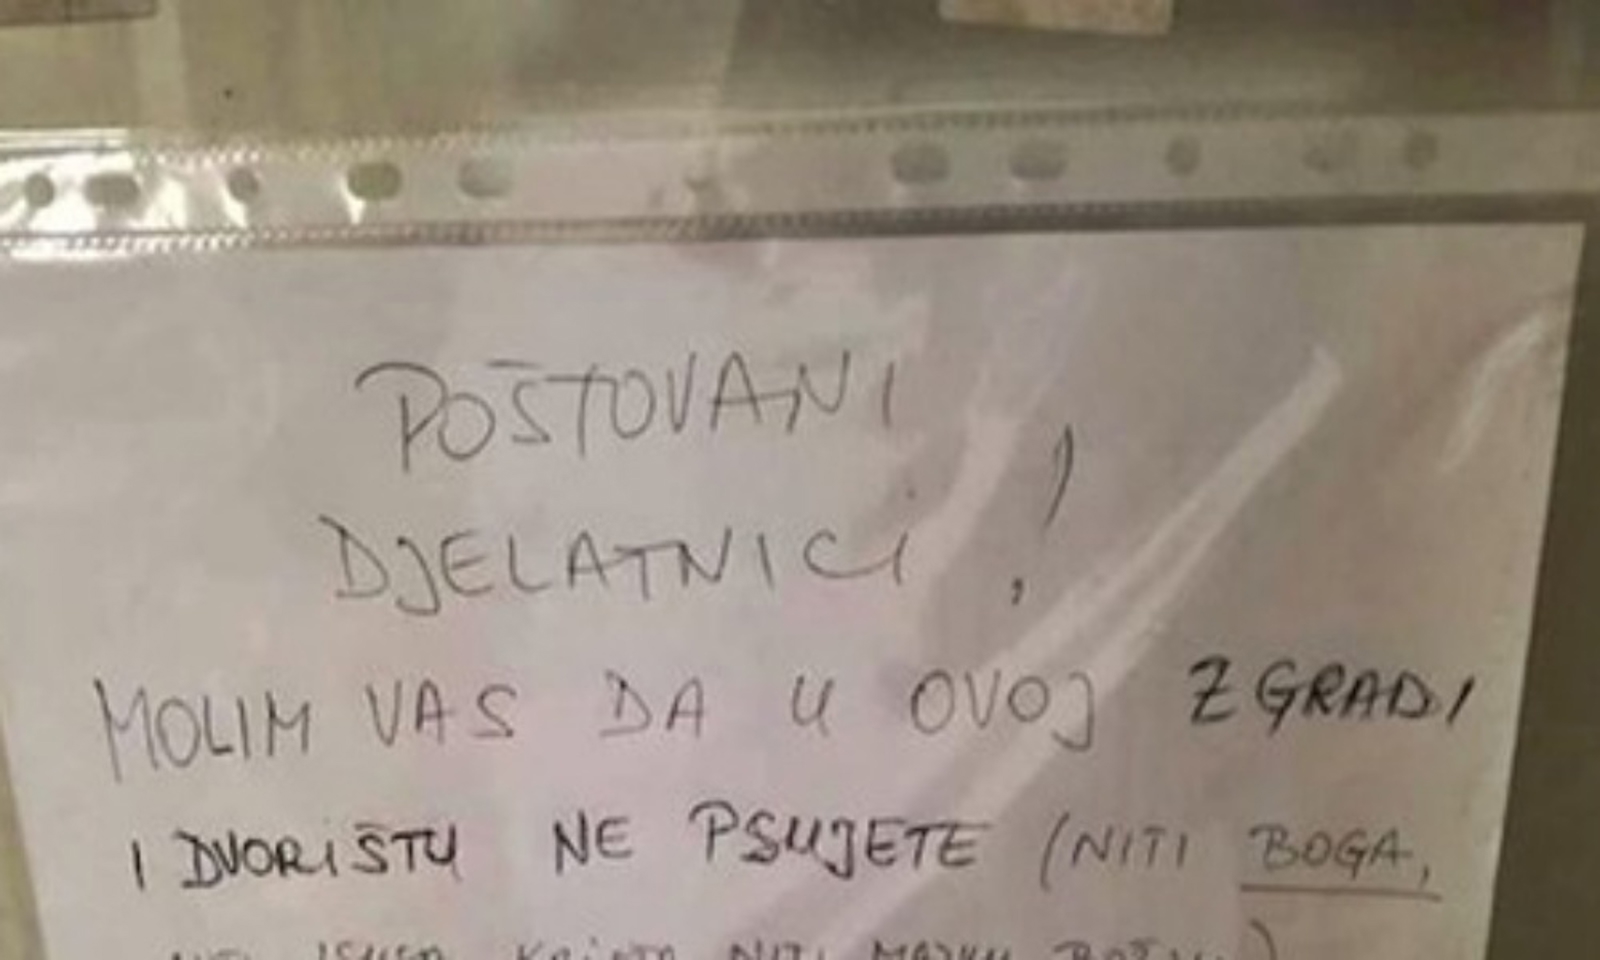 POŠTOVANI
DJELATNICI!
MOLIM VAS DA U OVOJ ZGRADI
I DVORIŠTU NE PSUJETE (NITI BOGA,
NITI ISUSA KRISTA NITI MAJKU BOŽJU)